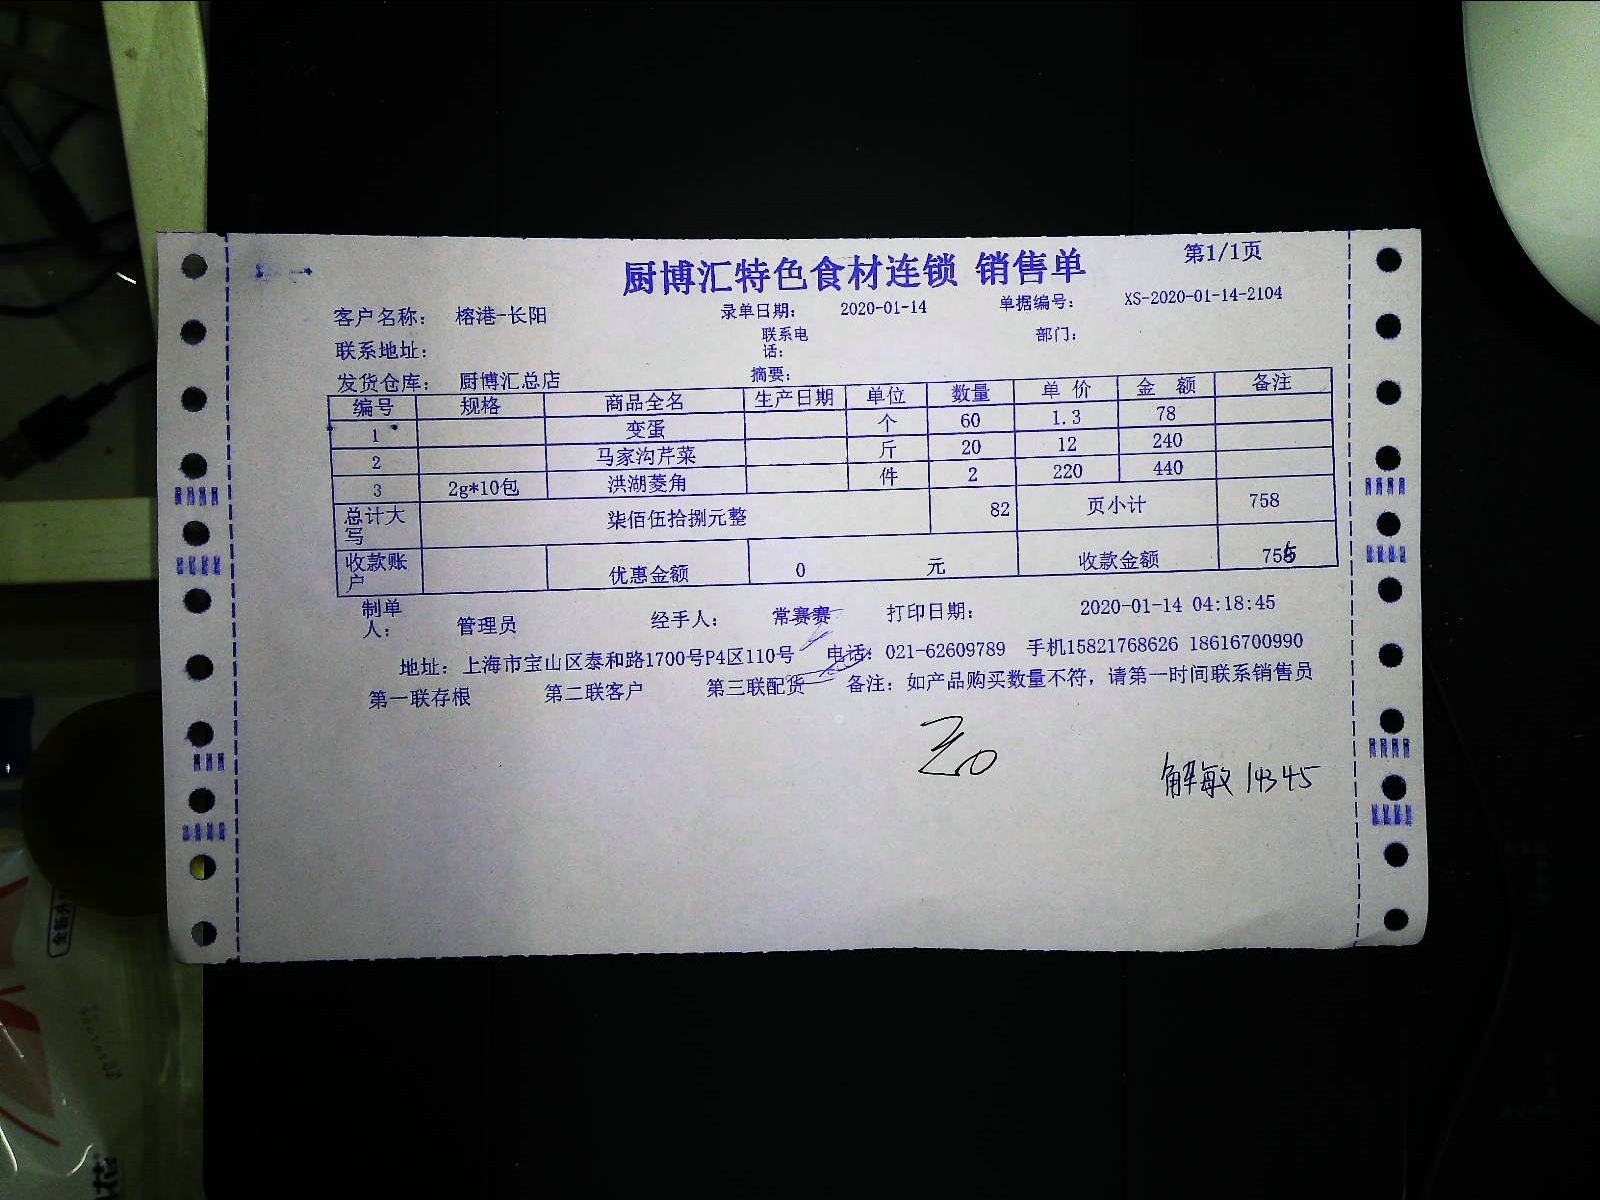 厨博汇特色食材连锁 销售单 第1/1页
客户名称: 榕港-长阳 录单日期: 2020-01-14 单据编号: XS-2020-01-14-2104
联系地址: 联系电话: 部门:
发货仓库: 厨博汇总店 摘要:
编号 规格 商品全名 生产日期 单位 数量 单价 金额 备注
1 变蛋 个 60 1.3 78
2 马家沟芹菜 斤 20 12 240
3 2g*10包 洪湖菱角 件 2 220 440
总计大写 柒佰伍拾捌元整 82 页小计 758
收款账户 优惠金额 0 元 收款金额 755
制单人: 管理员 经手人: 常赛赛 打印日期: 2020-01-14 04:18:45
地址: 上海市宝山区泰和路1700号P4区110号 电话: 021-62609789 手机15821768626 18616700990
第一联存根 第二联客户 第三联配货 备注: 如产品购买数量不符,请第一时间联系销售员
解敏 14345